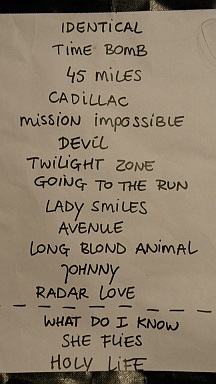 IDENTICAL
TIME BOMB
45 MILES
CADILLAC
mission impossible
DEVIL
TWILIGHT ZONE
GOING TO THE RUN
LADY SMILES
AVENUE
LONG BLOND ANIMAL
JOHNNY
RADAR LOVE
WHAT DO I KNOW
SHE FLIES
HOLY LIFE